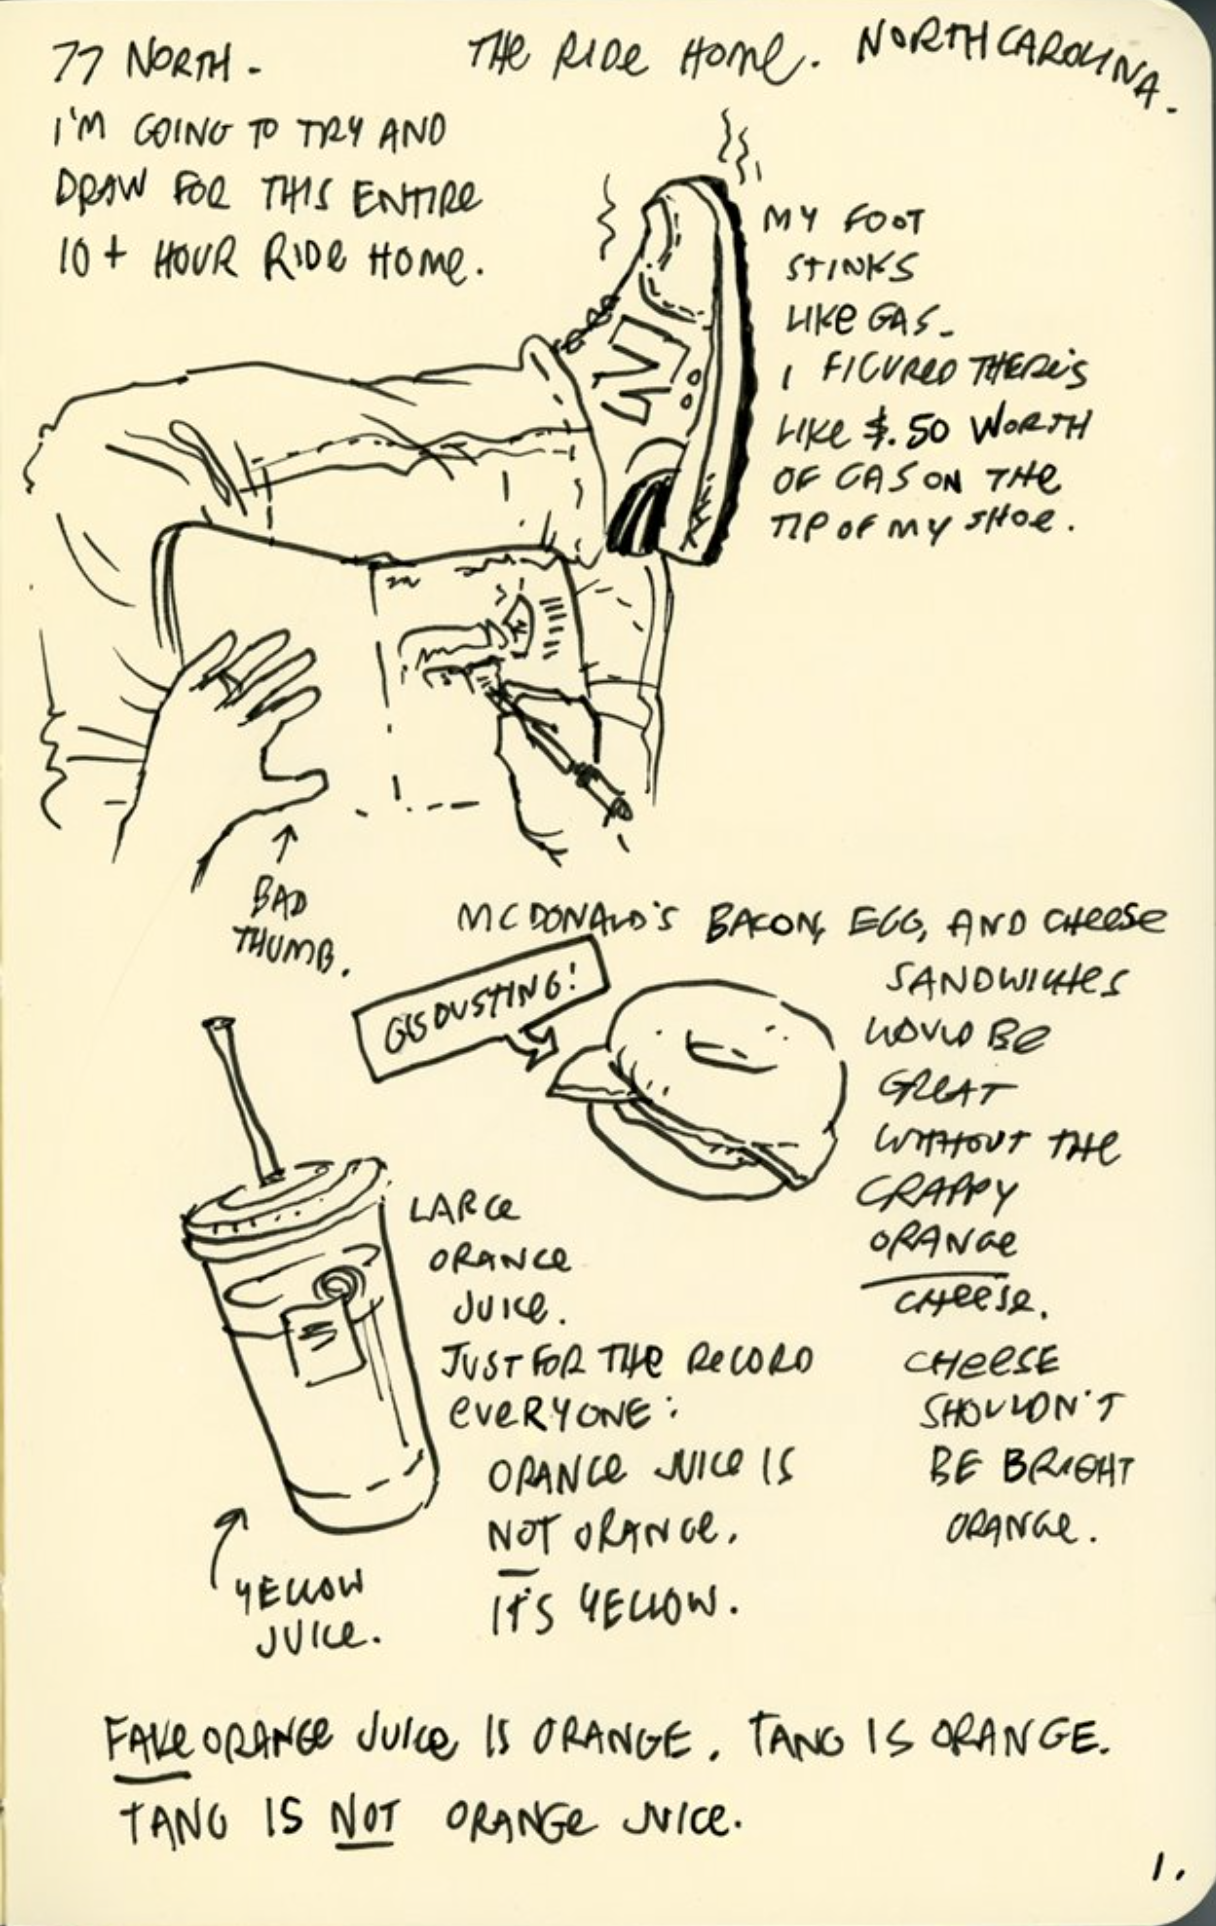 77 NORTH -
THE RIDE HOME. NORTH CAROLINA.
I'M GOING TO TRY AND
DRAW FOR THIS ENTIRE
10+ HOUR RIDE HOME.
MY FOOT
STINKS
LIKE GAS-
I FIGURED THERE'S
LIKE $.50 WORTH
OF GAS ON THE
TIP OF MY SHOE.
N
BAD
THUMB.
MCDONALD'S BACON, EGG, AND CHEESE
SANDWICHES
WOULD BE
GREAT
WITHOUT THE
CRAPPY
ORANGE
CHEESE.
CHEESE
SHOULDN'T
BE BRIGHT
ORANGE.
GISDUSTING!
LARGE
ORANGE
JUICE.
JUST FOR THE RECORD
EVERYONE:
ORANGE JUICE IS
NOT ORANGE.
IT'S YELLOW.
YELLOW
JUICE.
FAKE ORANGE JUICE IS ORANGE. TANG IS ORANGE.
TANG IS NOT ORANGE JUICE.
1.